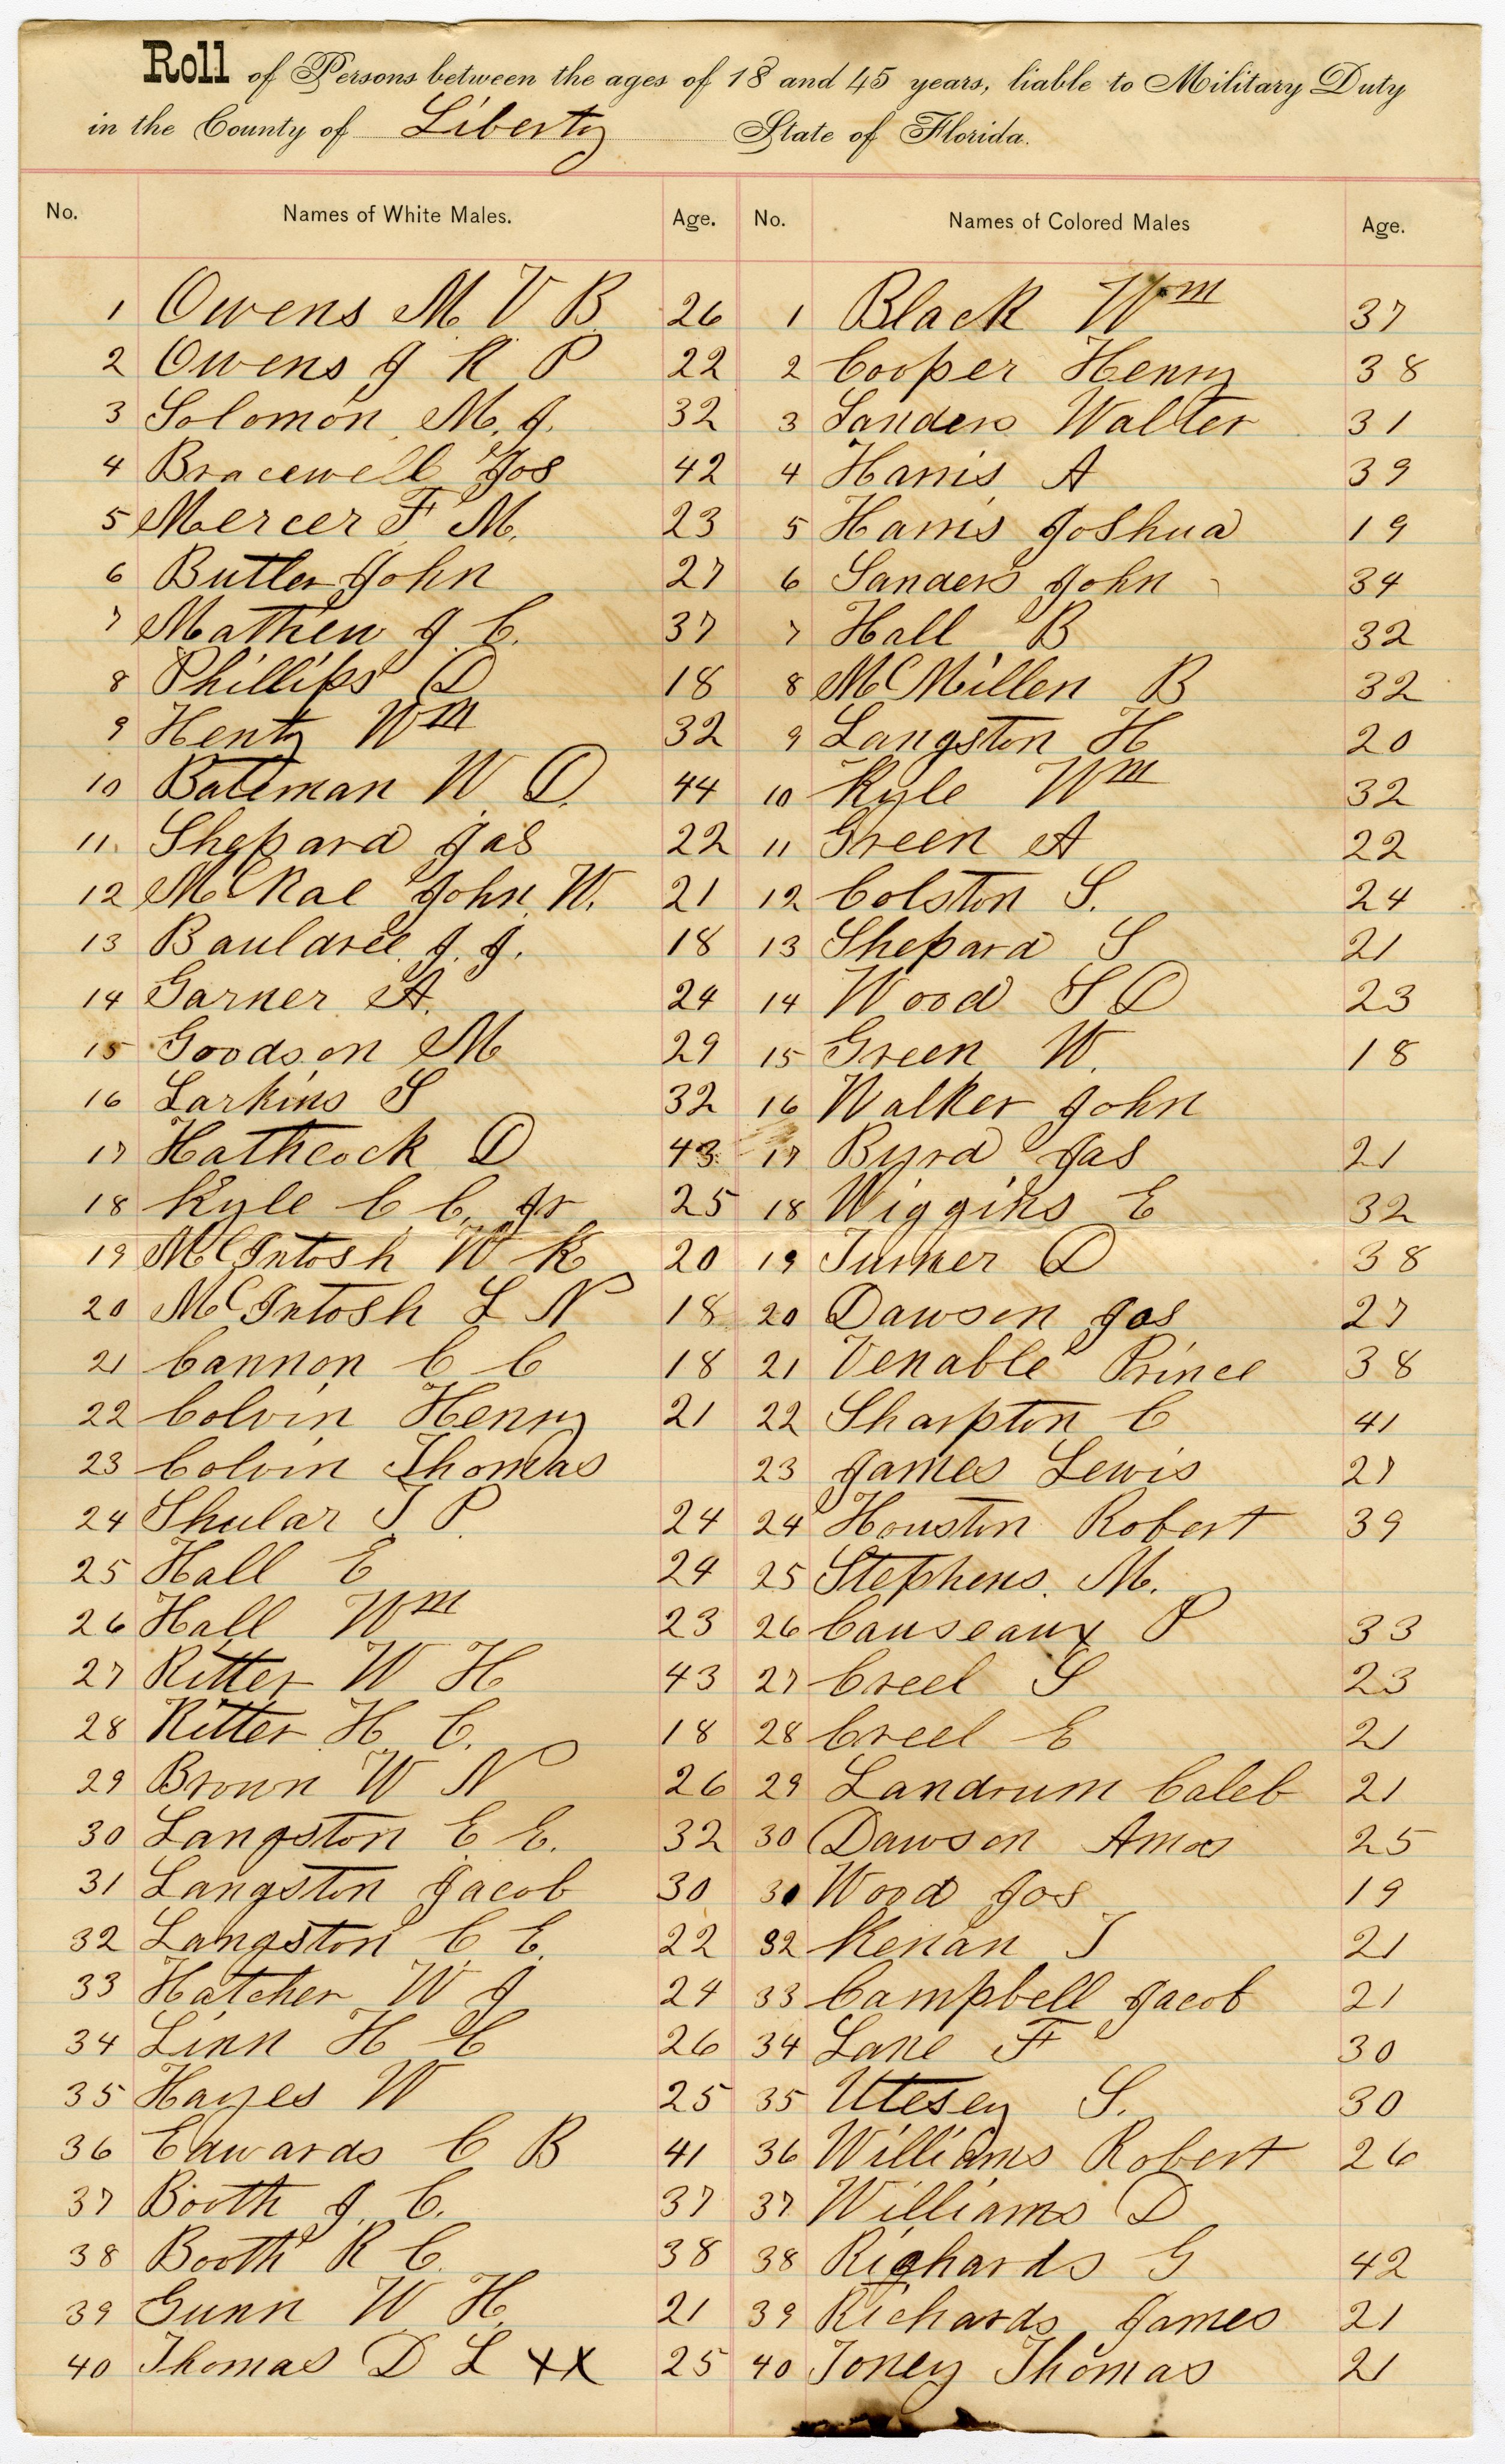 Roll of Persons between the ages of 18 and 45 years, liable to Military Duty
in the County of Liberty State of Florida.
No. Names of White Males. Age. No. Names of Colored Males Age.
1 Owens M V B 26 1 Black Wm 37
2 Owens J K P 22 2 Cooper Henry 38
3 Solomon M. J. 32 3 Sanders Walter 31
4 Bracewell Jos 42 4 Harris A 39
5 Mercer F M. 23 5 Harris Joshua 19
6 Butler John 27 6 Sanders John 34
7 Mathew J C. 37 7 Hall B 32
8 Phillips D 18 8 McMillen B 32
9 Hentz Wm 32 9 Langston H 20
10 Bateman W D. 44 10 Kyle Wm 32
11. Shepard Jas 22 11 Green A 22
12 McRae John W. 21 12 Colston S. 24
13 Bauldree J. J. 18 13 Shepard S 21
14 Garner A. 24 14 Wood S D 23
15 Goodson M 29 15 Green W. 18
16 Larkins S 32 16 Walker John
17 Hathcock D 43 17 Byrd Jas 21
18 Kyle C C. Jr 25 18 Wiggins E 32
19 McIntosh W K 20 19 Turner D 38
20 McIntosh L N 18 20 Dawson Jos 27
21 Cannon C C 18 21 Venable Prince 38
22 Colvin Henry 21 22 Sharpton C 41
23 Colvin Thomas 23 James Lewis 27
24 Shular T P. 24 24 Houston Robert 39
25 Hall E 24 25 Stephens. M.
26 Hall Wm 23 26 Causeaux P 33
27 Ritter W H 43 27 Creel S 23
28 Ritter H C. 18 28 Creel E 21
29 Brown W N 26 29 Landrum Caleb 21
30 Langston E E. 32 30 Dawson Amos 25
31 Langston Jacob 30 31 Wood Jos 19
32 Langston C E. 22 32 Kenan T 21
33 Hatcher W J 24 33 Campbell Jacob 21
34 Linn H C 26 34 Lane F 30
35 Hayes W 25 35 Utesey S. 30
36 Edwards C B 41 36 Williams Robert 26
37 Booth J. C. 37 37 Williams D
38 Booth R C. 38 38 Richards G 42
39 Gunn W H. 21 39 Richards James 21
40 Thomas D L XX 25 40 Toney Thomas 21